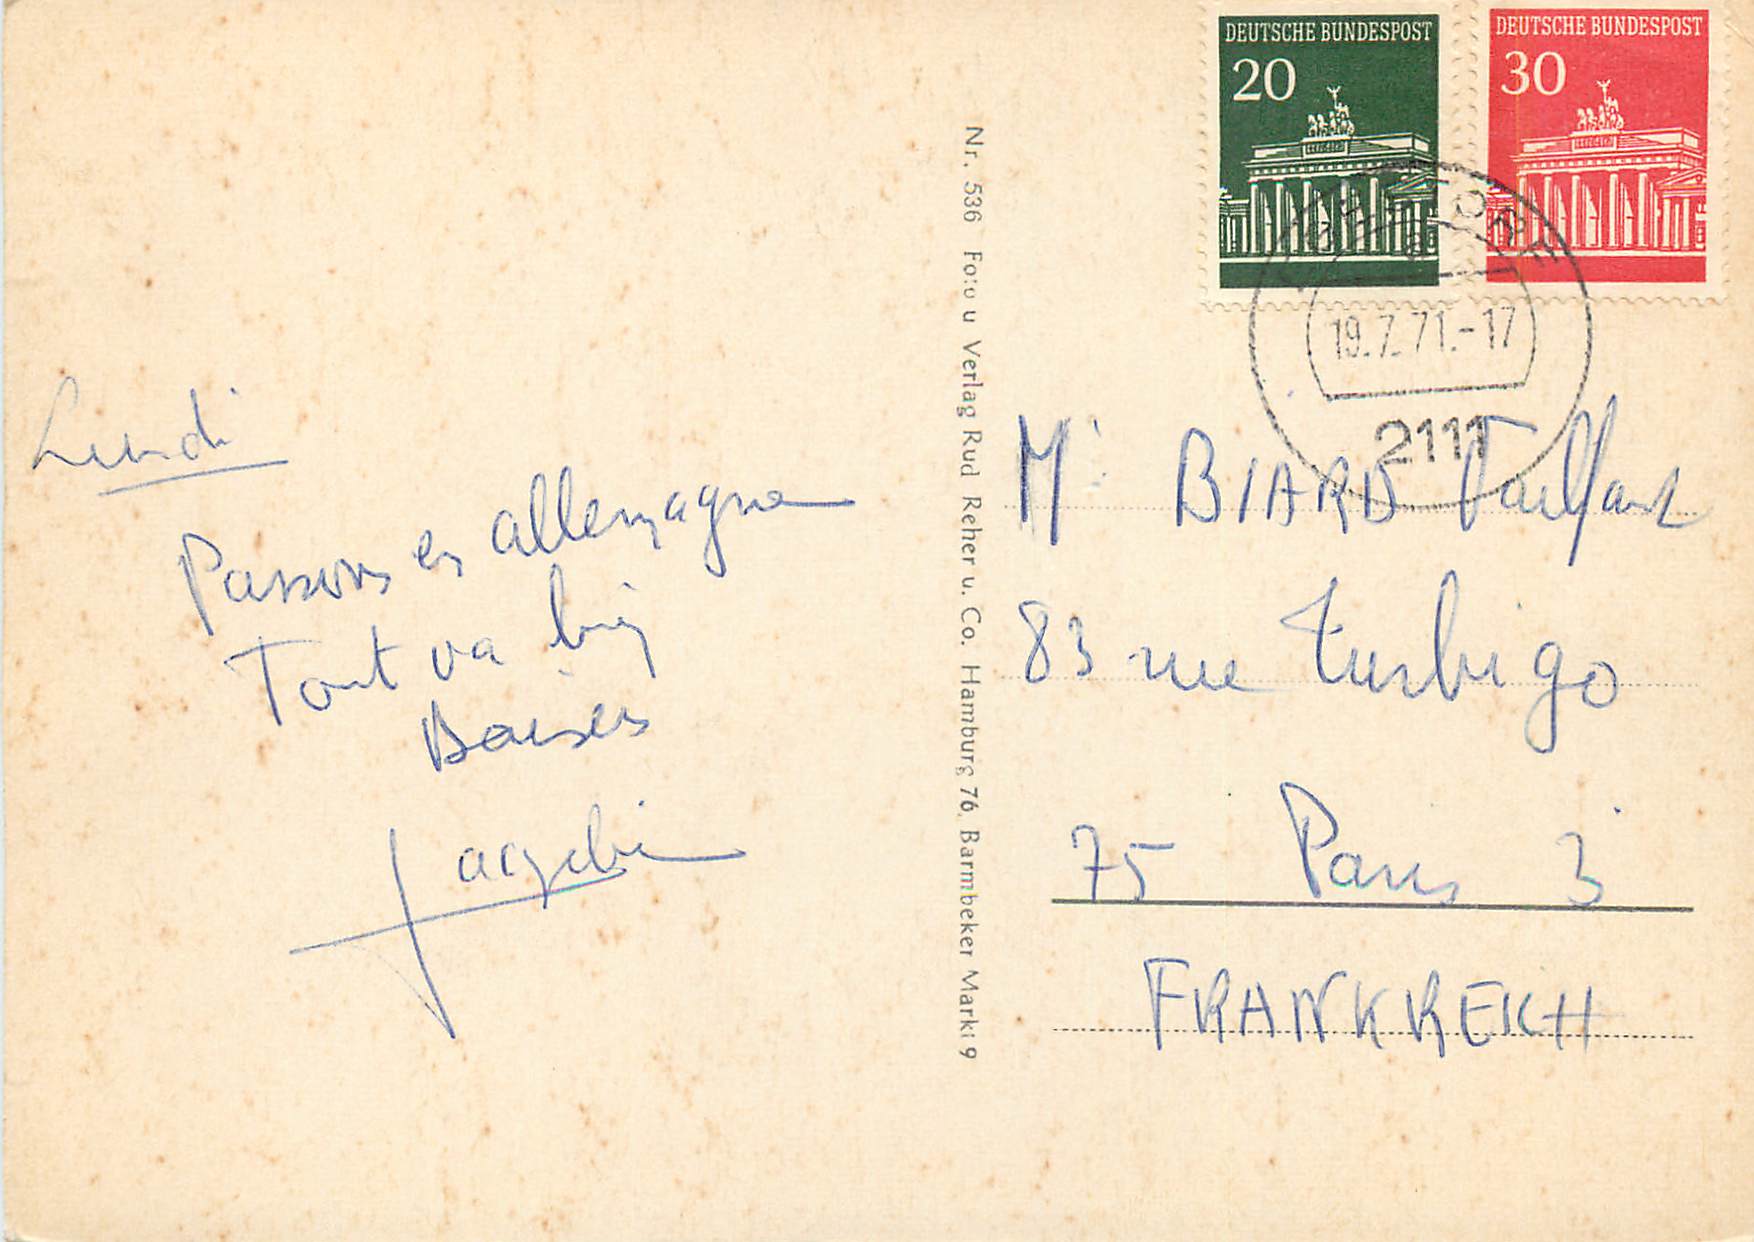 Lundi
Passons en allemagne
Tout va bien
Baises
Nr. 536 Foto u Verlag Rud Reher u. Co. Hamburg 76, Barmbeker Markt 9
DEUTSCHE BUNDESPOST
20
DEUTSCHE BUNDESPOST
30
19.7.71.-17
2111
Mr BIARD Vaillant
83 rue Turbigo
75 Paris 3
FRANKREICH